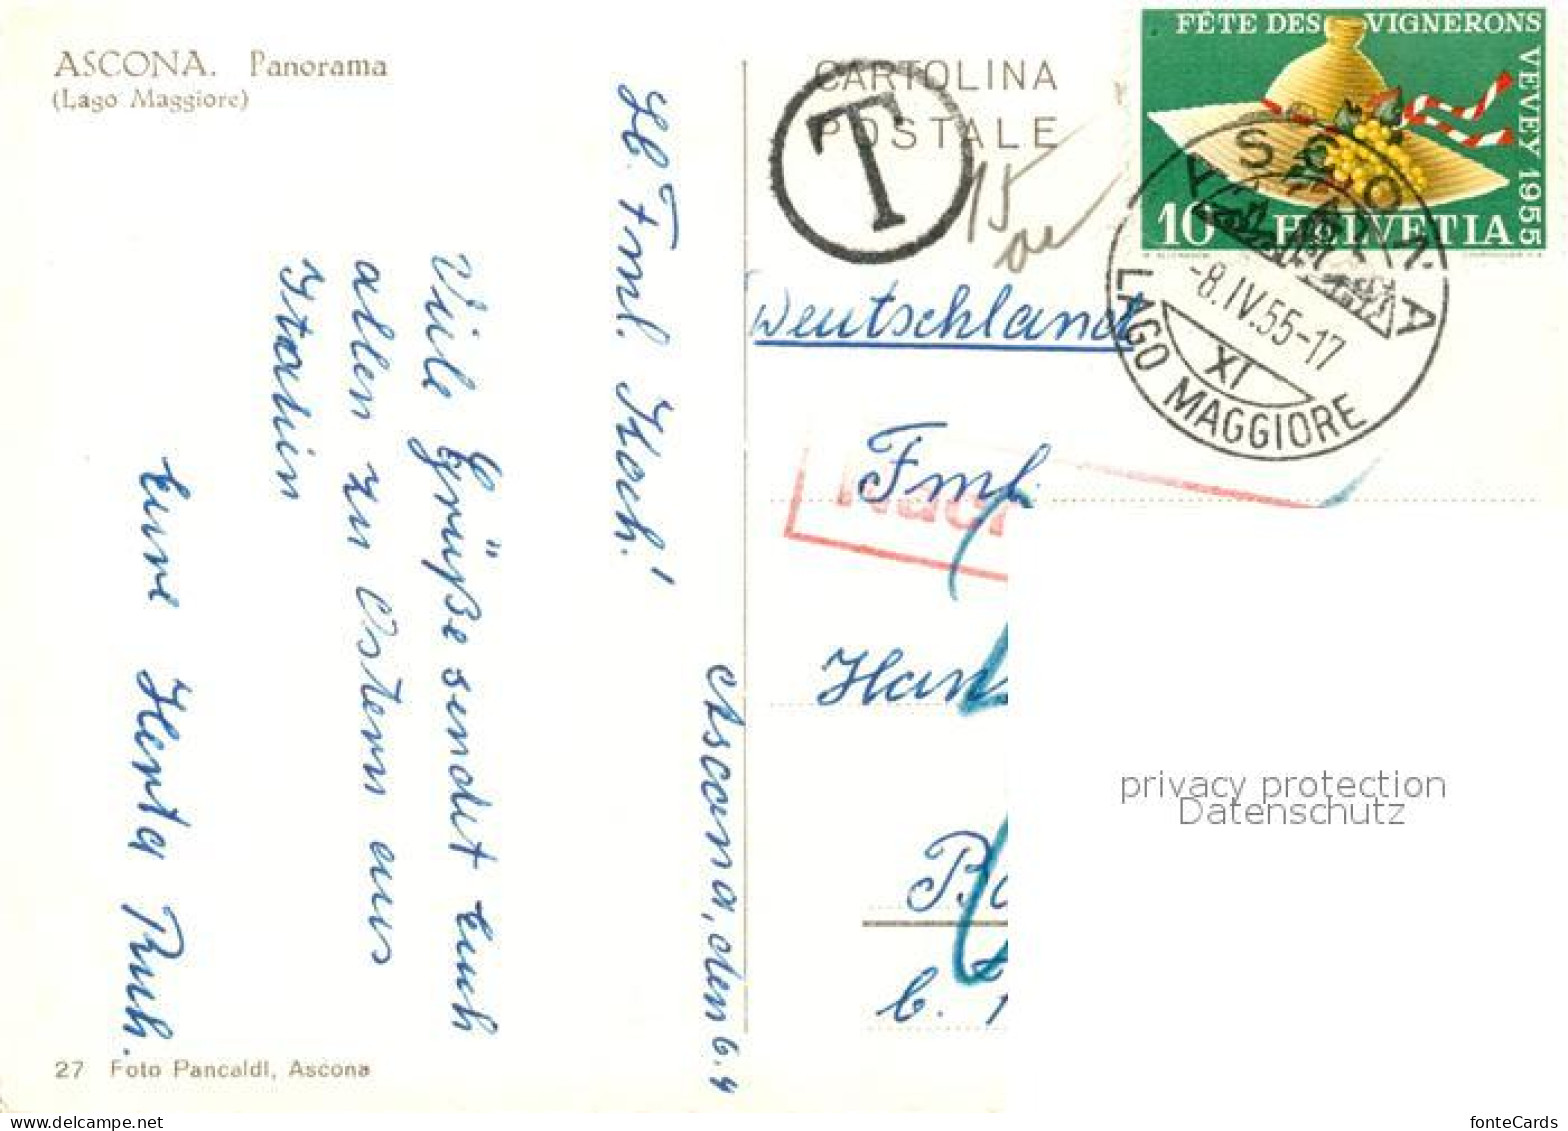 ASCONA. Panorama
(Lago Maggiore)
CARTOLINA
POSTALE
T
15
FÊTE DES VIGNERONS
VEVEY 1955
10 HELVETIA
ASCONA
-8.IV.55-17
XI
LAGO MAGGIORE
Deutschland
Fml.
Nach
Han
B
b.
Ascona, den 6.4
Lb. Fml. Koch!
Viele Grüße sendet Euch
allen zu Ostern aus
Italien
Eure Herta Ruh.
27 Foto Pancaldi, Ascona
privacy protection
Datenschutz
fonteCards